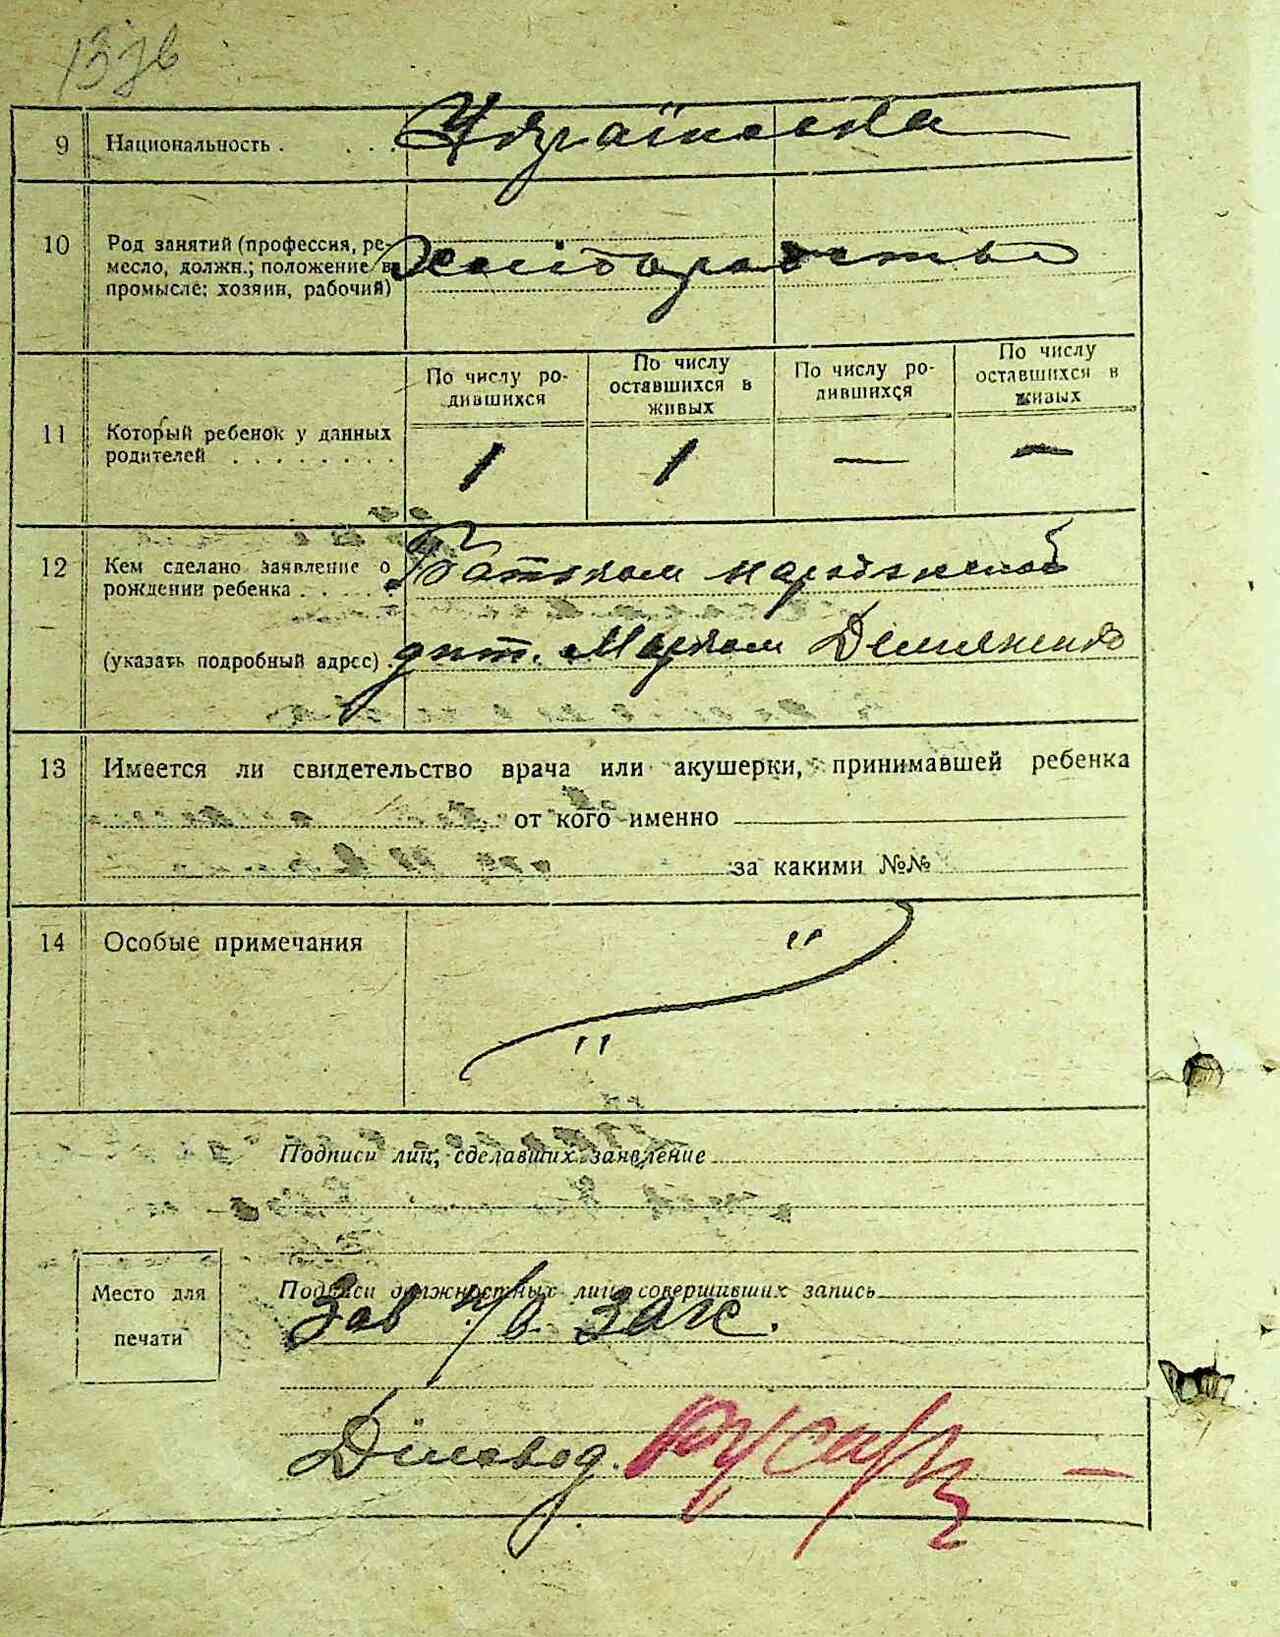 137б
9 Национальность . . . . Українська
10 Род занятий (профессия, ре-
месло, должн.; положение в
промысле: хозяин, рабочий)
Хліборобство
По числу ро-
дившихся
По числу
оставшихся в
живых
По числу ро-
дившихся
По числу
оставшихся в
живых
11 Который ребенок у данных
родителей . . . . . . . .
1 1 — —
12 Кем сделано заявление о
рождении ребенка . . . . .
Батьком народженої
(указать подробный адрес) .
дит. Марком Демяненко
13 Имеется ли свидетельство врача или акушерки, принимавшей ребенка
от кого именно
за какими №№
14 Особые примечания
" "
Подписи лиц, сделавших заявление
Место для
печати
Подписи должностных лиц, совершивших запись
Зав п/в загс.
Діловод.